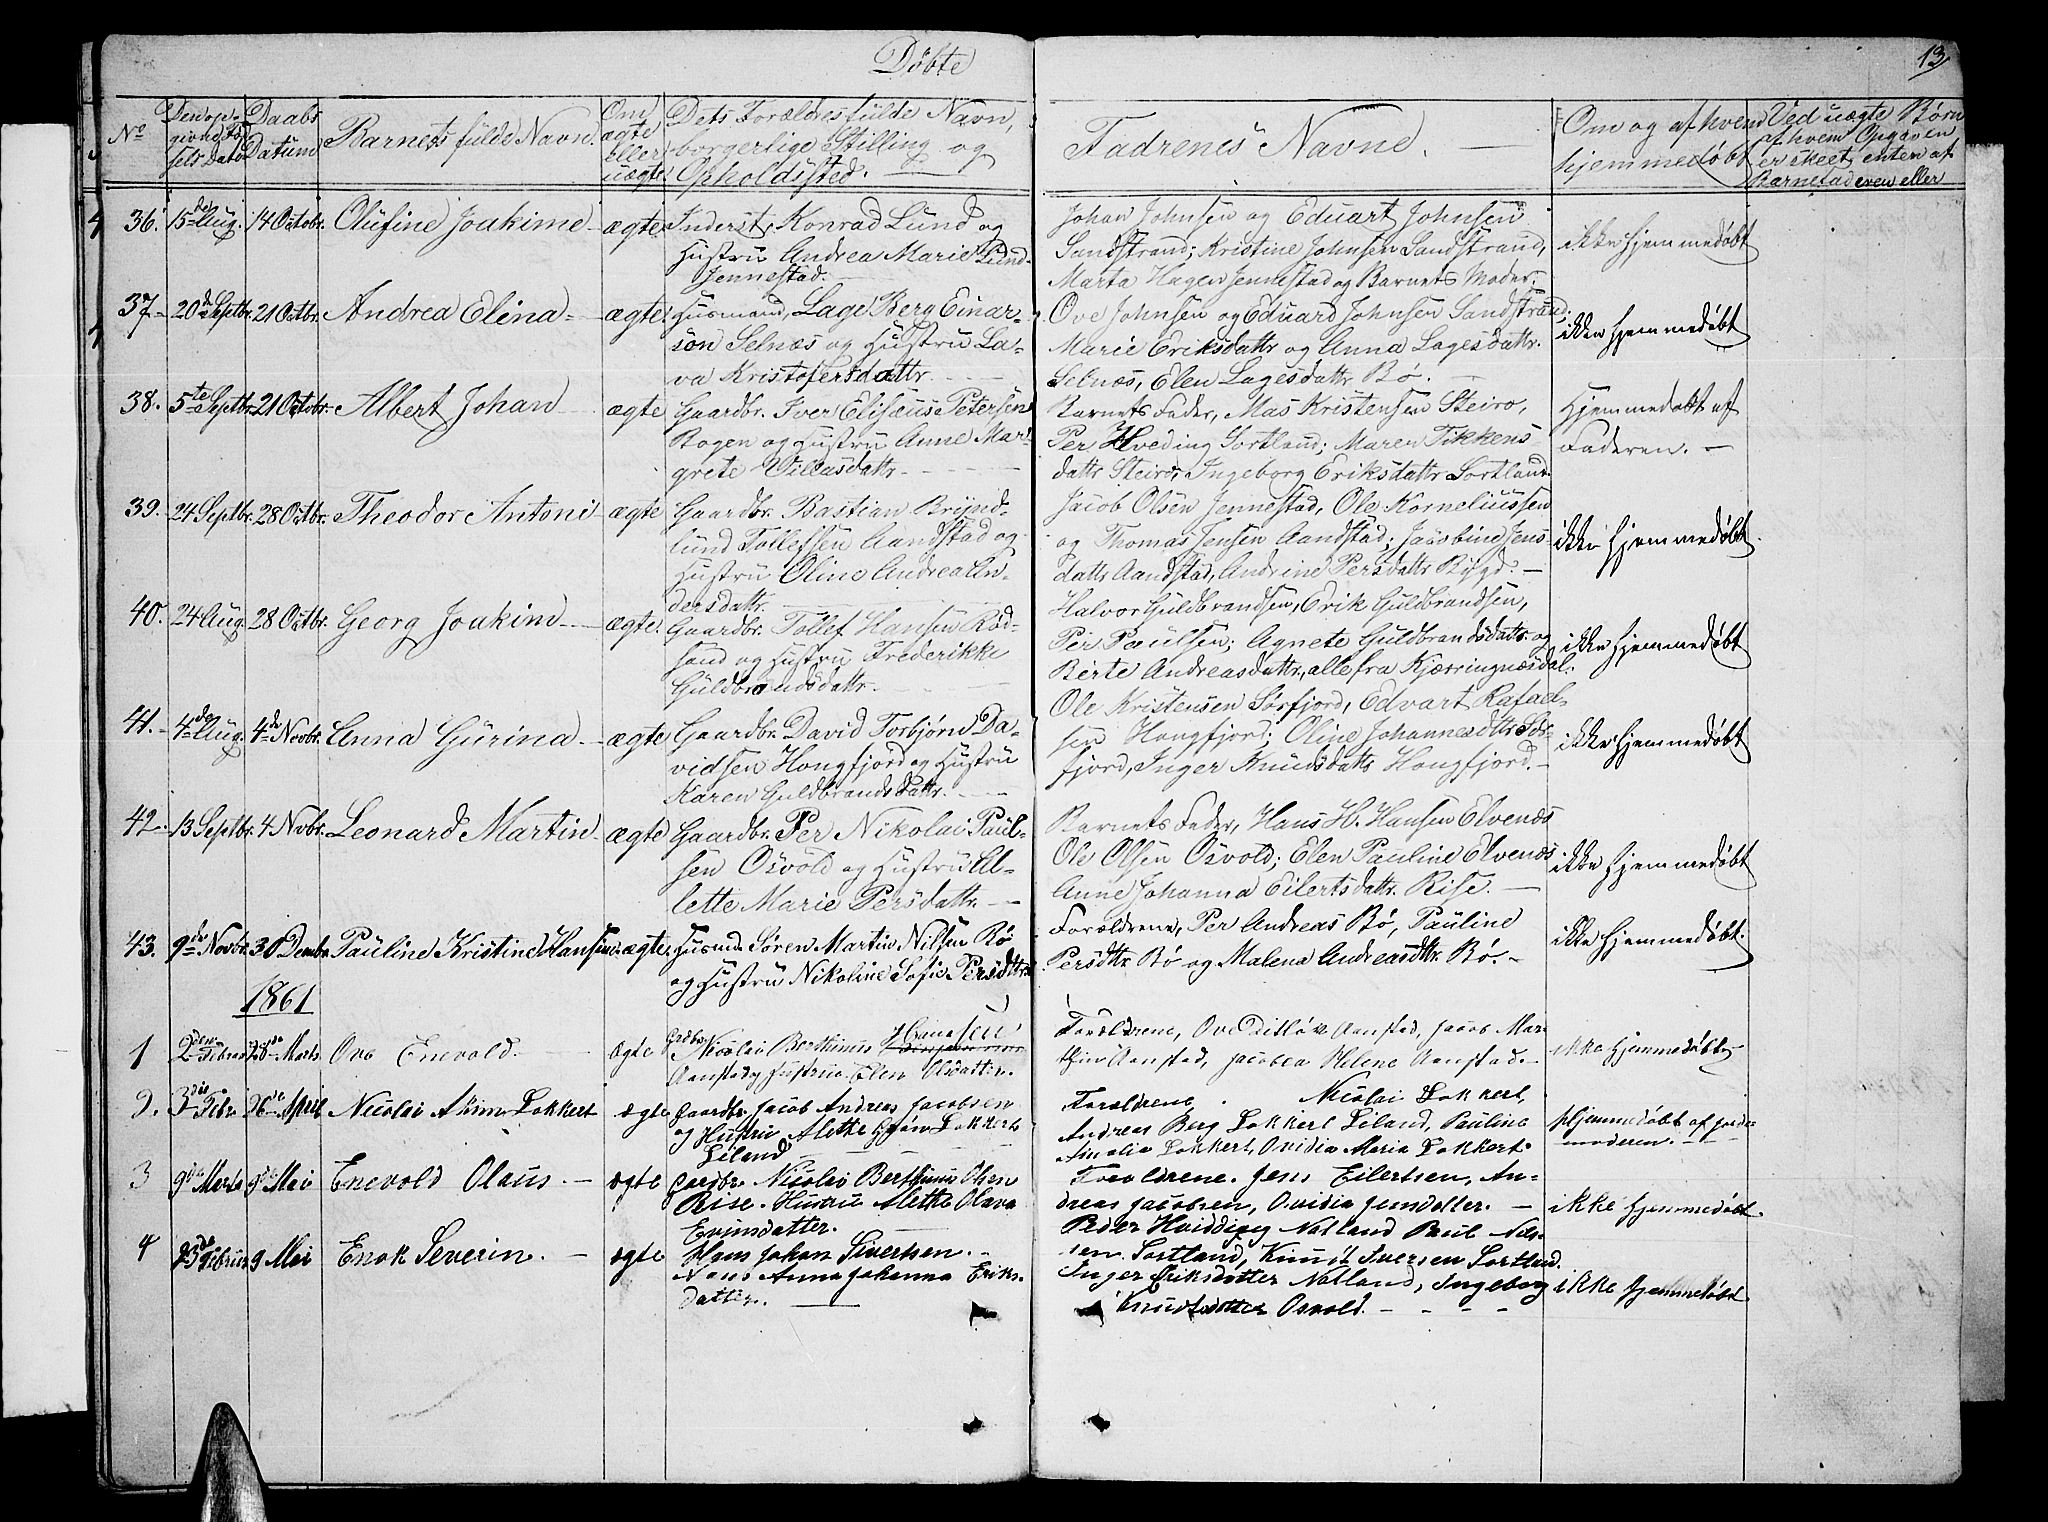 Döbte
13
No
Den op-
givne Fød-
sels Dato
Daabs
Datum
Barnets fulde Navn.
Om
ægte
eller
uægte.
Dets Forældres fulde Navn,
borgerlige Stilling og
Opholdssted.
Fadrenes Navne.
Om og af hvem
hjemmedøbt
Ved uægte Børn
af hvem Opgaven
er skeet, enten af
Barnefaderen eller
36. 15de Aug. 14 Octobr. Olufine Joakime ægte Inderst, Konrad Lund og
Hustru Andrea Marie Lund
Jennestad.
Johan Johnsen og Eduart Johnsen
Sandstrand; Kristine Johnsen Sandstrand,
Marta Hagen Jennestad og Barnets Moder.
ikke hjemmedøbt
37. 20de Septbr. 21 Octbr. Andrea Elina ægte Husmand, Lage Berg Einar-
sön Selnæs og Hustru La-
va Kristofersdattr.
Ove Johnsen og Eduard Johnsen Sandstrand.
Marie Eriksdattr og Anna Lagesdattr.
Selnæs, Elen Lagesdattr Bø.
ikke hjemmedøbt
38. 5te Septbr. 21 Octobr. Albert Johan ægte Gaardbr. Iver Eliseus Petersen
Bogen og Hustru Anne Mar-
grete Villasdattr.
Barnets Fader, Mas Kristensen Steiro,
Per Hveding Sortland; Maren Tikkens
dattr Steiro, Ingeborg Eriksdattr Sortland.
Hjemmedøbt af
Faderen.
39. 24 Septbr. 28 Octbr. Theodor Antoni ægte Gaardbr. Bastian Brynd-
lund Tollefsen Aandstad og
Hustru Oline Andrea An-
dersdattr.
Jacob Olsen Jennestad, Ole Korneliussen
og Thomas Jensen Aandstad; Jacobine Jens-
dattr Aandstad, Andrine Persdattr Bygd.
ikke hjemmedøbt.
40. 24 Aug. 28 Octbr. Georg Joakim ægte. Gaardbr. Tollef Hansen Röd-
sand og Hustru Frederikke
Guldbrandsdattr.
Halvor Guldbrandsen, Erik Guldbrandsen,
Per Paulsen; Agnete Guldbrandsdattr og
Berte Andreasdattr, alle fra Kjærringnæsdal.
ikke hjemmedøbt
41. 4de Aug. 4de Novbr. Anna Gurina ægte Gaardbr. David Torbjørn Da-
vidsen Hongfjord og Hustru
Karen Guldbrandsdattr.
Ole Kristensen Sörfjord, Edvart Rafael-
sen Hongfjord; Oline Johannesdttr Sör-
fjord, Inger Knudsdattr Hongfjord.
ikke hjemmedøbt
42. 13 Septbr. 4 Novbr. Leonard Martin ægte Gaardbr. Per Nikolai Paul-
sen Osvold og Hustru Al-
lette Marie Persdattr.
Barnets Fader, Hans H. Hansen Elvenæs
Ole Olsen Osvold; Elen Pauline Elvenæs
Anne Johanna Eilertsdattr. Rise.
ikke hjemmedøbt
43. 9de Novbr. 30 Dembr. Pauline Kristine Hansine ægte. Husmd. Sören Martin Nilsen Bø
og Hustru Nikoline Sofie Persdttr.
Forældrene, Per Andreas Bø, Pauline
Persdtr. Bø og Malena Andreasdttr. Bø.
ikke hjemmedøbt.
1861
1 2den Febrar Marts Ove Enevold ægte Grdbr. Nicolai Berthinus Hansen
Aanstad og Hustrue Elen Olsdatter.
Forældrene, Ove Ditlöv Aanstad, Jacob Mar-
thin Aanstad, Jacobea Helene Aanstad.
ikke hjemmedøbt
2. 3die Febr. 26de April Nicolai Akim Lokkert ægte Gaardbr. Jacob Andreas Jacobsen
og Hustru Alette Lokkert
Liland
Forældrene. Nicolai Lokkert,
Andreas Berg Lokkert Liland, Pauline
Amalia Lokkert, Ovidia Maria Lokkert.
Hjemmedøbt af Jorde-
moderen.
3 9de Marts 9de Mai Enevold Olaus ægte Gardbr. Nicolai Berthinus Olsen
Rise. Hustru Alethe Olava
Evjensdatter.
Forældrene. Jens Eilertsen, An-
dreas Jacobsen, Ovidia Jensdatter.
ikke hjemmedøbt.
4 23de Februar 9 Mai Enok Severin. ægte Hans Johan Sivertsen.
Anna Johanna Eriks-
datter.
Peder Natland Paul Nils-
sen Sortland, Knut Iversen Sortland.
Inger Eriksdatter Natland, Ingeborg
Knutsdatter Osvold.
ikke hjemmedøbt.